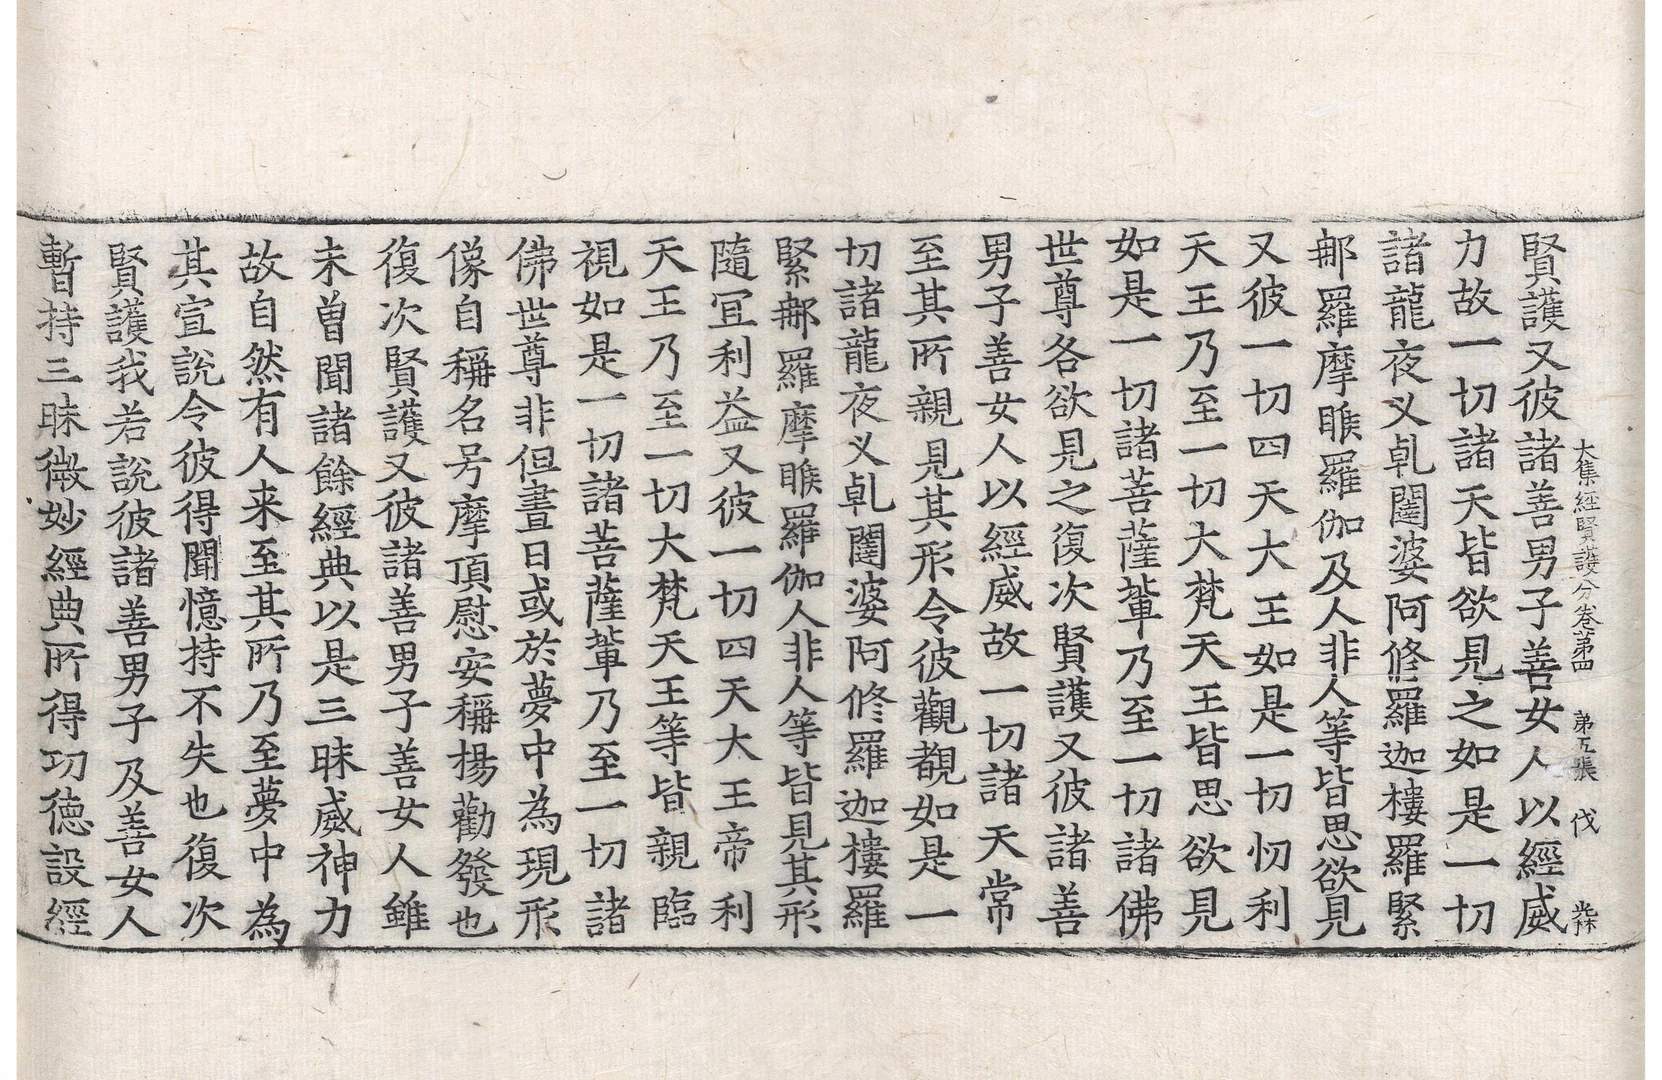 大集經賢護分卷第四　第五張　伐
賢護又彼諸善男子善女人以經威
力故一切諸天皆欲見之如是一切
諸龍夜叉乹闥婆阿修羅迦樓羅緊
那羅摩睺羅伽及人非人等皆思欲見
又彼一切四天大王如是一切忉利
天王乃至一切大梵天王皆思欲見
如是一切諸菩薩軰乃至一切諸佛
世尊各欲見之復次賢護又彼諸善
男子善女人以經威故一切諸天常
至其所親見其形令彼觀覩如是一
切諸龍夜叉乹闥婆阿修羅迦樓羅
緊那羅摩睺羅伽人非人等皆見其形
隨冝利益又彼一切四天大王帝利
天王乃至一切大梵天王等皆親臨
視如是一切諸菩薩軰乃至一切諸
佛世尊非但晝日或於夢中為現形
像自稱名号摩頂慰安稱揚勸發也
復次賢護又彼諸善男子善女人雖
未曽聞諸餘經典以是三昧威神力
故自然有人来至其所乃至夢中為
其宣說令彼得聞憶持不失也復次
賢護我若說彼諸善男子及善女人
暫持三昧微妙經典所得功德設經